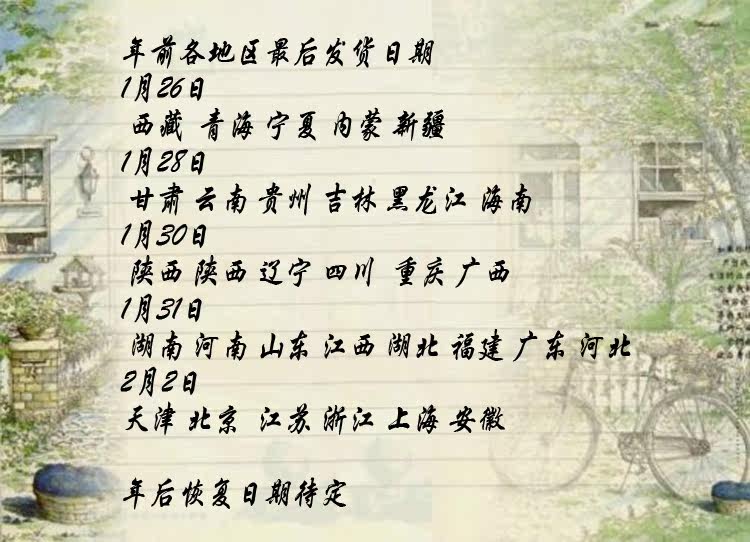 年前各地区最后发货日期
1月26日
西藏 青海 宁夏 内蒙 新疆
1月28日
甘肃 云南 贵州 吉林 黑龙江 海南
1月30日
陕西 陕西 辽宁 四川 重庆 广西
1月31日
湖南 河南 山东 江西 湖北 福建 广东 河北
2月2日
天津 北京 江苏 浙江 上海 安徽
年后恢复日期待定